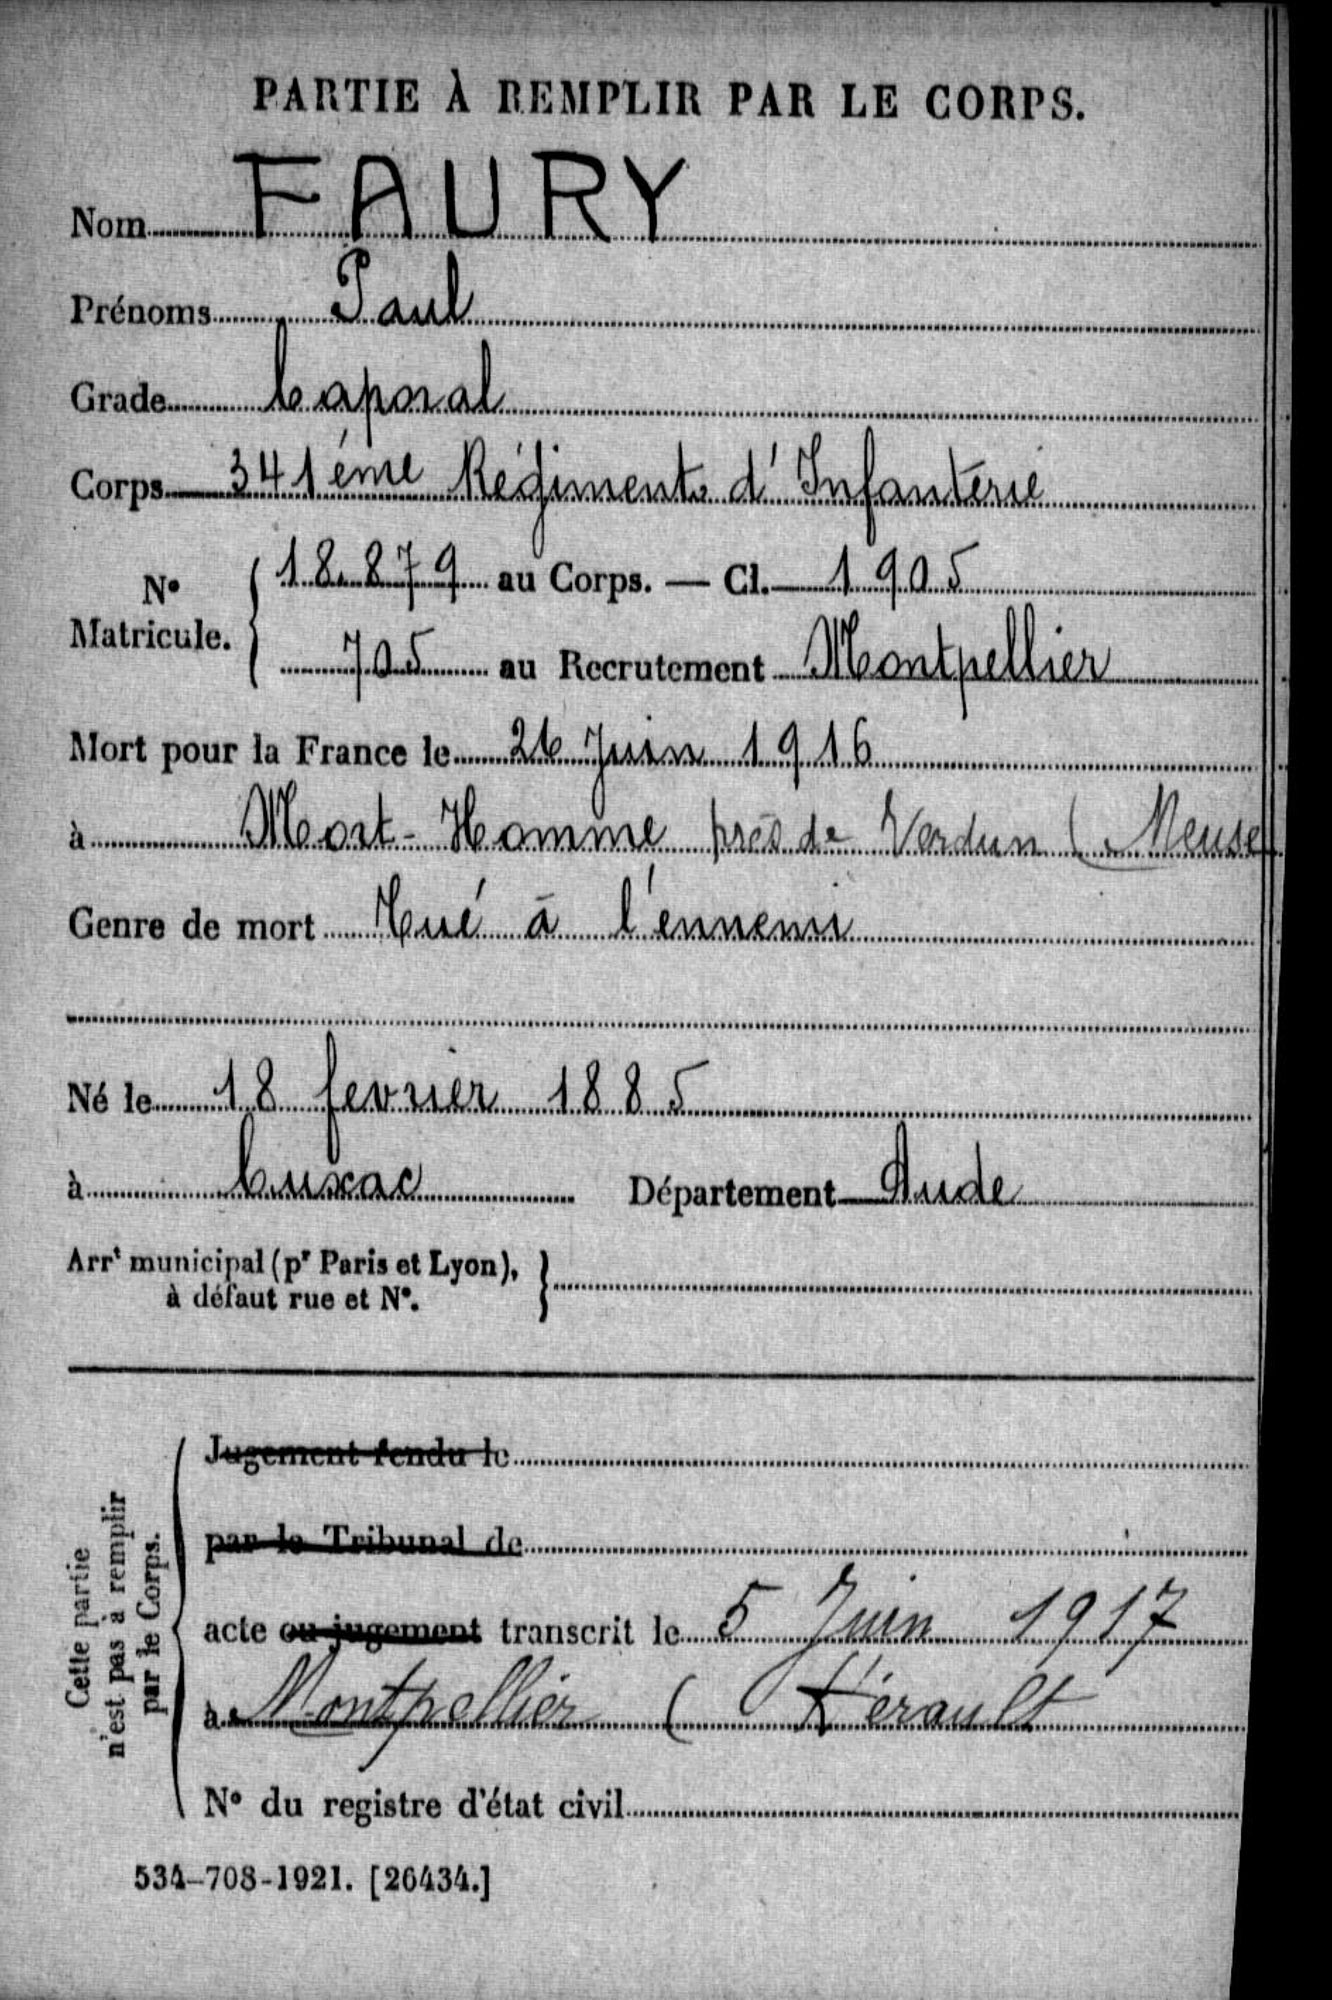 PARTIE À REMPLIR PAR LE CORPS.
Nom FAURY
Prénoms Paul
Grade Caporal
Corps 341ème Régiment d'Infanterie
N° Matricule. { 18.879 au Corps. — Cl. 1905
705 au Recrutement Montpellier
Mort pour la France le 26 Juin 1916
à Mort-Homme près de Verdun (Meuse)
Genre de mort Tué à l'ennemi
Né le 18 fevrier 1885
à Cuxac Département Aude
Arrt municipal (pr Paris et Lyon), }
à défaut rue et N°.
Cette partie
n'est pas à remplir
par le Corps.
Jugement rendu le
par le Tribunal de
acte ou jugement transcrit le 5 Juin 1917
à Montpellier ( Hérault
N° du registre d'état civil
534-708-1921. [26434.]